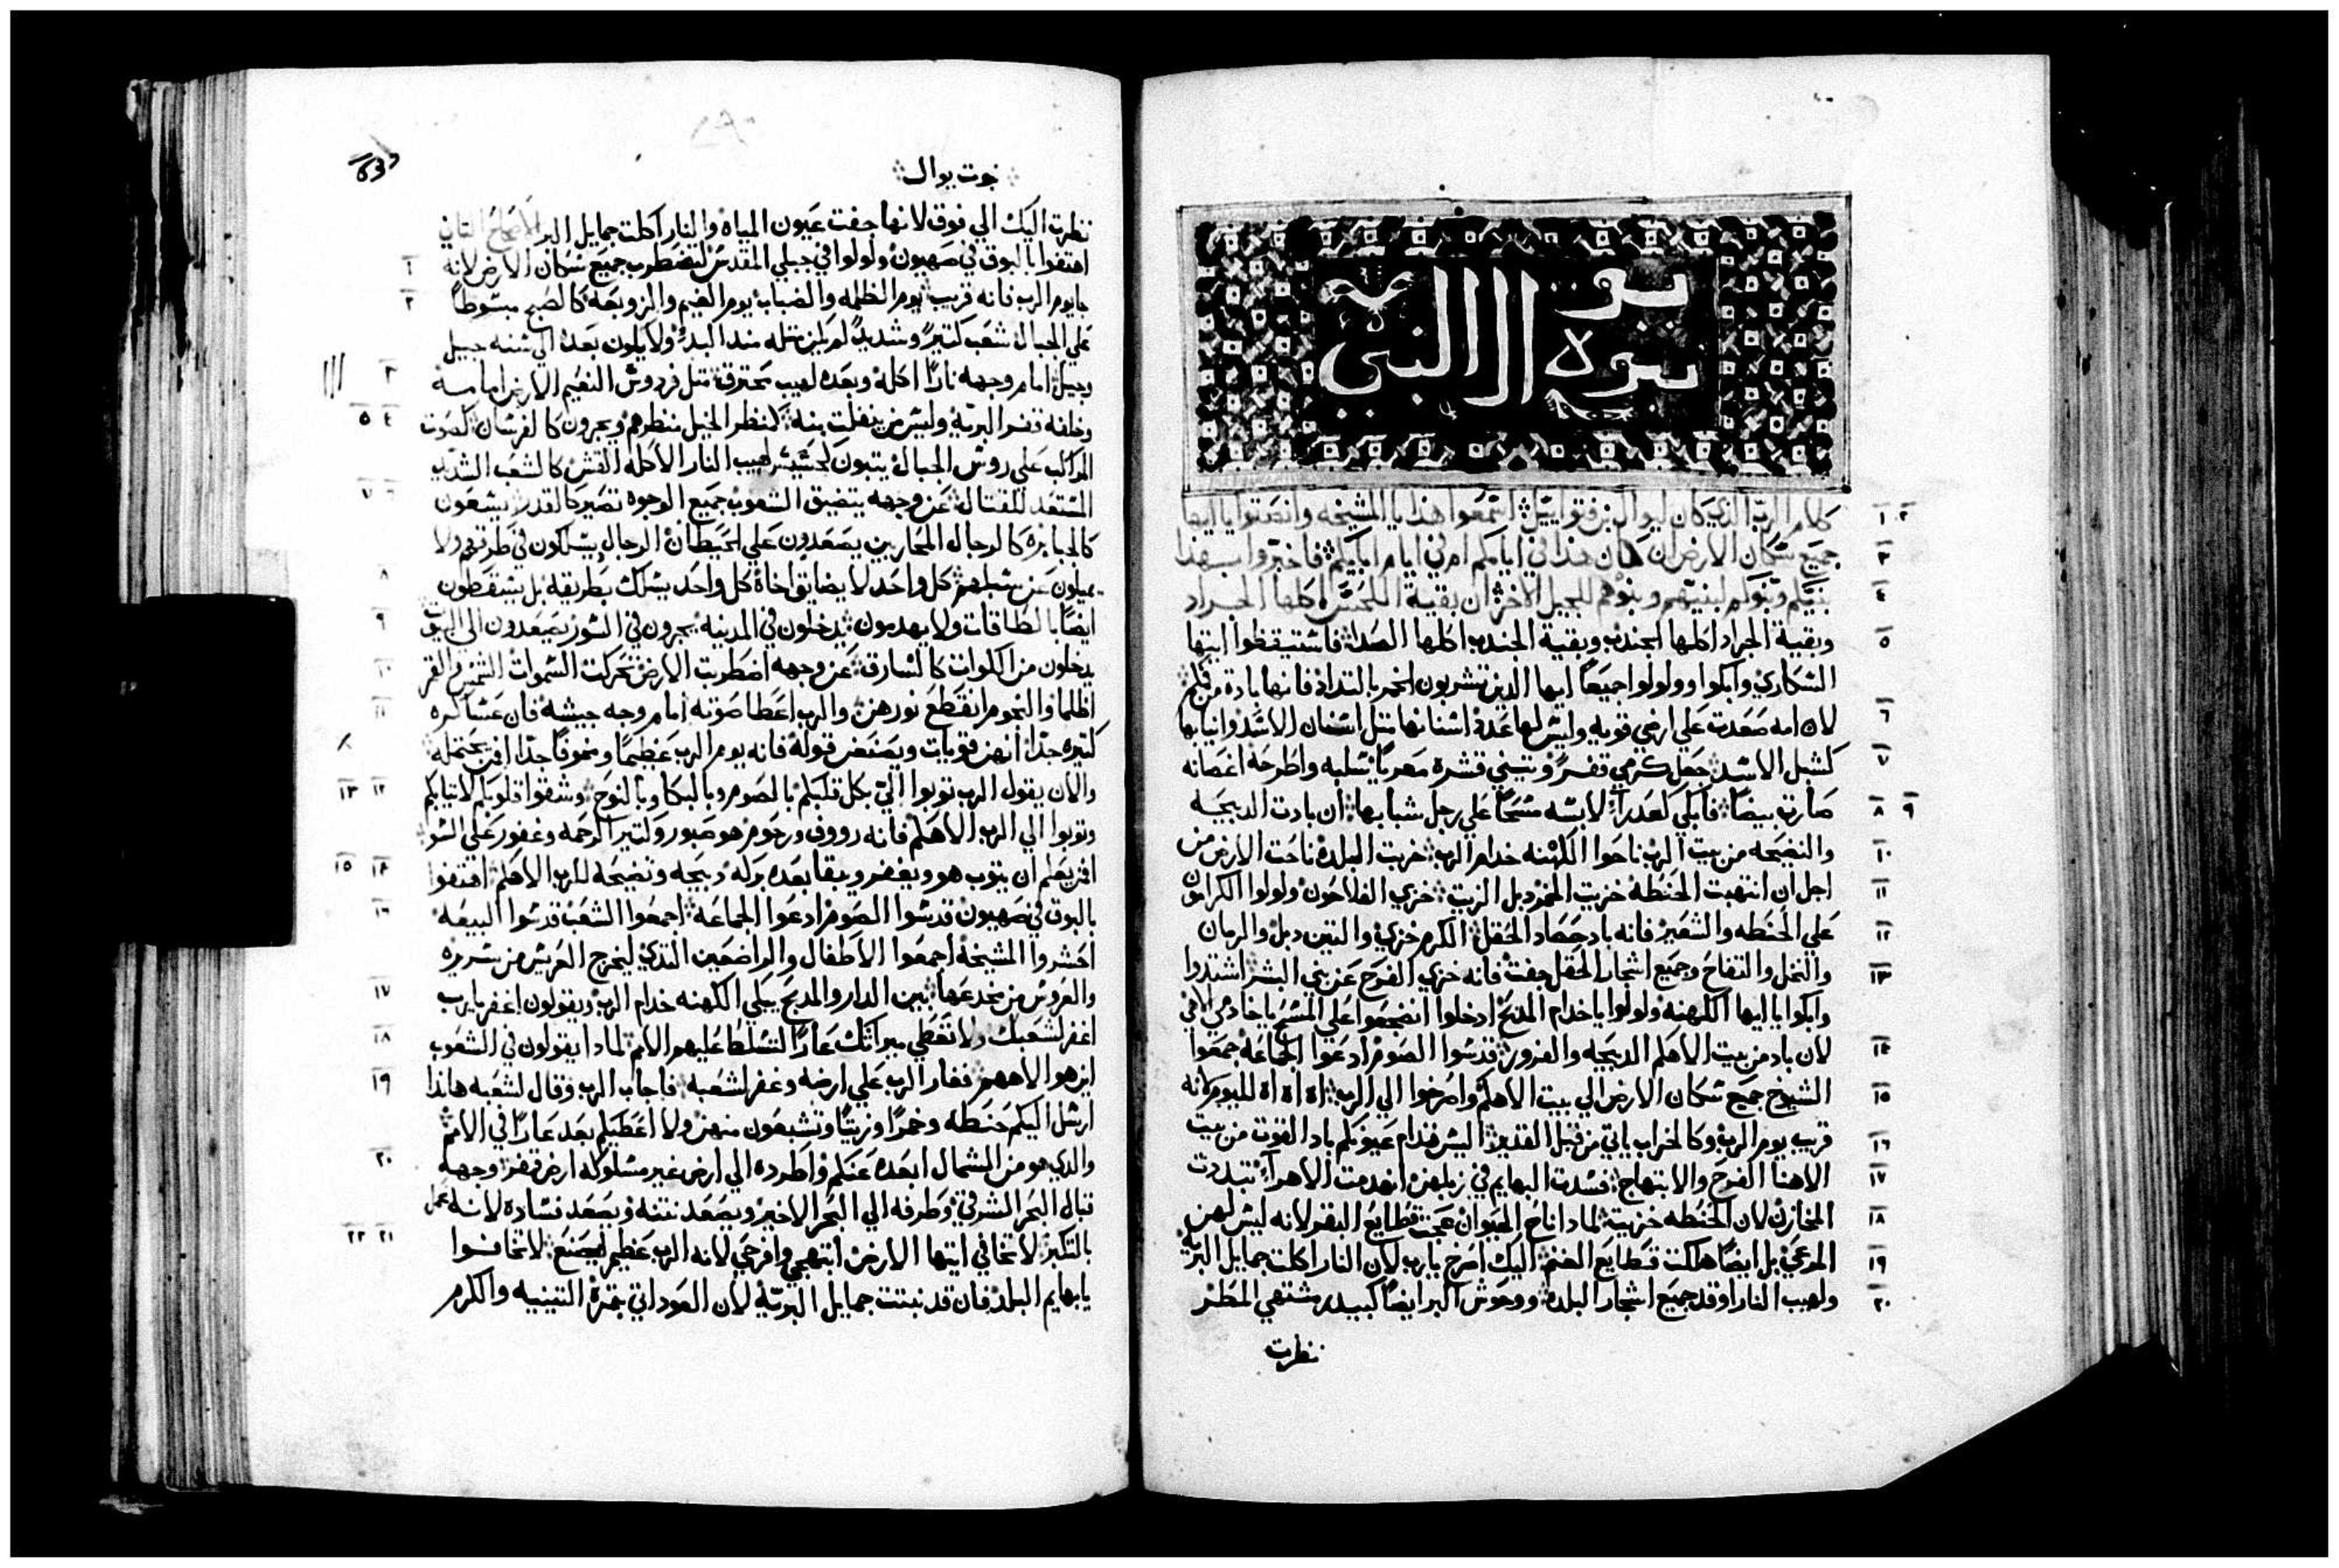 نبوة يوال النبي
كلام الرب الذي كان ليوال بن فتواييل اسمعوا هذا يا المشيخه وانصتوا يا ايها
جميع سكان الارض ان كان هذا في ايامكم ام في ايام ابايكم فاخبروا بهذا
بنيكم وبنوكم لبنيهم وبنوهم للجيل الاخر ان بقية اكلها الجراد
وبقية الجراد اكلها الجندب وبقية الجندب اكلها الصدا فاستيقظوا ايتها
السكاري وابكوا وولولوا جميعا ايها الذين تشربون الخمر بالتداد فانها بادة من فمكم
لان امه صعدت علي ارضي قويه وليس لها عدة اسنانها مثل اسنان الاسد وانيابها
كشبل الاسد جعل كرمي قفر وتيني قشره معريا سلبه واطرحه اغصانه
صارت بيضا فابكي كعدرآ لابسه مسحا علي رجل شبابها ان بادت الدبيحه
والنضيحه من بيت الرب ناحوا الكهنه خدام الرب خربت البلدة ناحت الارض من
اجل ان انتهبت الحنطة خزيت الخمر دبل الزيت خزي الفلاحون ولولوا الكرامون
علي الحنطه والشعير فانه باد حصاد الحقل الكرم خزي والتين دبل والرمان
والنخل والتفاح وجميع اشجار الحقل جفت فانه خزي الفرح عن بني البشر اشتدوا
وابكوا يا ايها الكهنه ولولوا يا خدام المدبح ادخلوا انضجعوا علي المسح يا خادمي الاهي
لان باد من بيت الاهكم الدبيحه والنزور قدسوا الصوم ادعوا الجماعه جمعوا
الشيوخ جميع سكان الارض الي بيت الاهكم واصرخوا الي الرب اه اه اه لليوم لانه
قريب يوم الرب وكالخراب ياتي من قبل القدير اليس قدام عيونكم باد القوت من بيت
الاهنا الفرح والابتهاج فسدت البهايم في زبلهن انهدمت الاهرآ تبددت
المخازن لان الحنطه خزيت لمادا ناح الحيوان عجت قطايع البقر لانه ليس لهن
المرعي بل ايضا هلكت قطايع الغنم اليك اصرخ يارب لان النار اكلت جمايل البرية
ولهيب النار اوقد جميع اشجار البلدة ووحوش البر ايضا كبيدر مشتهي المطر
نظرت
نبوت يوال
نظرت اليك الي فوق لانها جفت عيون المياه والنار اكلت جمايل البر الاصحاح الثاني
اهتفوا بالبوق في صهيون ولولوا في جبلي المقدس لتضطرب جميع سكان الارض لانه
جا يوم الرب فانه قريب يوم الظلمه والضباب يوم الغيم والزوبعه كالصبح مبسوطا
علي الجبال شعب كتير وشديد لم يكن مثله منذ البدؤ ولا يكون بعده الي سنه جيل
وجيل امام وجهه نارا اكلة وبعده لهيب محترق مثل فردوس النعيم الارض امامه
وخلفه قفر البريه وليس من ينفلت منه كمنظر الخيل منظرهم ويجرون كالفرسان كصوت
المراكب علي روس الجبال يتبون كحسيس لهيب النار الاكله القش كالشعب الشديد
المستعد للقتال عن وجهه يتضيق الشعوب جميع الوجوه تصير كالقدر يسعون
كالجبابره كالرجال المحاربين يصعدون علي الحيطان الرجال يسلكون في طرقهم ولا
يميلون عن سبلهم كل واحد لا يضايق اخاه كل واحد يسلك بطريقه بل يسقطون
ايضا بالطاقات ولا يهدمون يدخلون في المدينه يجرون في السور يصعدون الي البيوت
يدخلون من الكوات كالسارق عن وجهه اضطربت الارض تحركت السموات الشمس والقمر
اظلما والنجوم انقطع نورهن والرب اعطا صوته امام وجه جيشه فان عساكره
كتيره جدا انهن قويات ويصنعن قوله فانه يوم الرب عظيما ومخوفا جدا فمن يحتمله
والان يقول الرب توبوا الي بكل قلبكم بالصوم وبالبكا وبالنوح وشقوا قلوبكم لا تيابكم
وتوبوا الي الرب الاهكم فانه رووف ورحوم هو صبور وكتير الرحمه وغفور علي السو
افمن يعلم ان يتوب هو ويغفر ويبقا بعده بركه دبيحه ونضيحة للرب الاهكم اهتفوا
بالبوق في صهيون قدسوا الصوم ادعوا الجماعه اجمعوا الشعب قدسوا البيعه
احشروا المشيخه اجمعوا الاطفال والراضعين التدي ليخرج العريس من سريره
والعروس من مخدعها بين الدار والمدبح يبكي الكهنه خدام الرب ويقولون اغفر يارب
اغفر لشعبك ولا تعطي ميراتك عارا لتسلط عليهم الامم لمادا يقولون في الشعوب
اين هو الاههم فغار الرب علي ارضه وغفر لشعبه فاجاب الرب وقال لشعبه هاندا
ارسل اليكم حنطه وخمرا وزيتا وتشبعون منهن ولا اعطيكم بعد عارا في الامم
والدي هو من الشمال ابعده عنكم واطرده الي ارض غير مسلوكه ارض قفر وجهه
قبال البحر الشرقي وطرفه الي البحر الاخير ويصعد نتنه ويصعد فساده لانه عمل
بالتكبر لا تخافي ايتها الارض ابتهجي وافرحي لانه الرب عظيم ليصنع لا تخافوا
يا بهايم البلد فان قد نبتت جمايل البريه لان العود اتي بتمرة التينيه والكرم